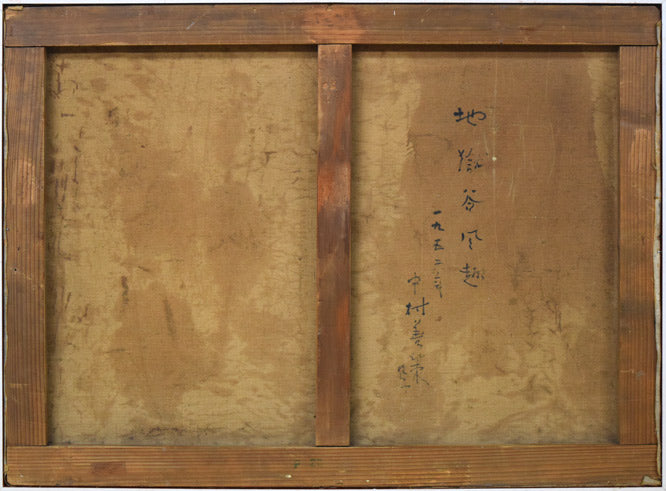 地獄谷風趣
一九五二年
中村善策